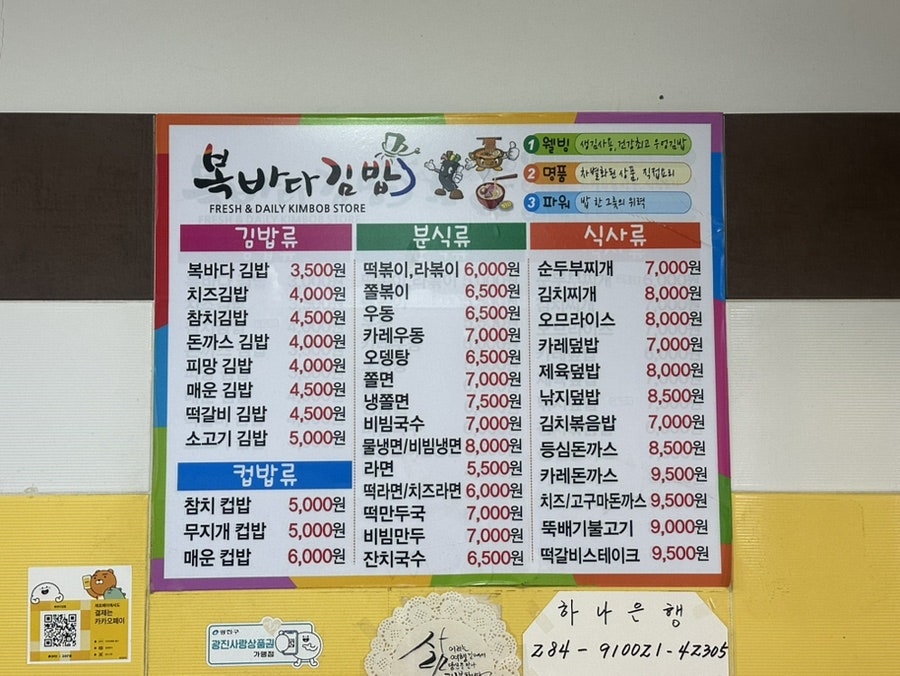 복바다김밥
FRESH & DAILY KIMBOB STORE
1 웰빙 생김사용, 건강최고 우엉김밥
2 명품 차별화된 상품, 직접요리
3 파워 밥 한 그릇의 위력
김밥류
복바다 김밥 3,500원
치즈김밥 4,000원
참치김밥 4,500원
돈까스 김밥 4,000원
피망 김밥 4,000원
매운 김밥 4,500원
떡갈비 김밥 4,500원
소고기 김밥 5,000원
컵밥류
참치 컵밥 5,000원
무지개 컵밥 5,000원
매운 컵밥 6,000원
분식류
떡볶이,라볶이 6,000원
쫄볶이 6,500원
우동 6,500원
카레우동 7,000원
오뎅탕 6,500원
쫄면 7,000원
냉쫄면 7,500원
비빔국수 7,000원
물냉면/비빔냉면 8,000원
라면 5,500원
떡라면/치즈라면 6,000원
떡만두국 7,000원
비빔만두 7,000원
잔치국수 6,500원
식사류
순두부찌개 7,000원
김치찌개 8,000원
오므라이스 8,000원
카레덮밥 7,000원
제육덮밥 8,000원
낚지덮밥 8,500원
김치볶음밥 7,000원
등심돈까스 8,500원
카레돈까스 9,500원
치즈/고구마돈까스 9,500원
뚝배기불고기 9,000원
떡갈비스테이크 9,500원
결제는
카카오페이
광진구
광진사랑상품권
가맹점
삶
하나은행
284-910021-42305